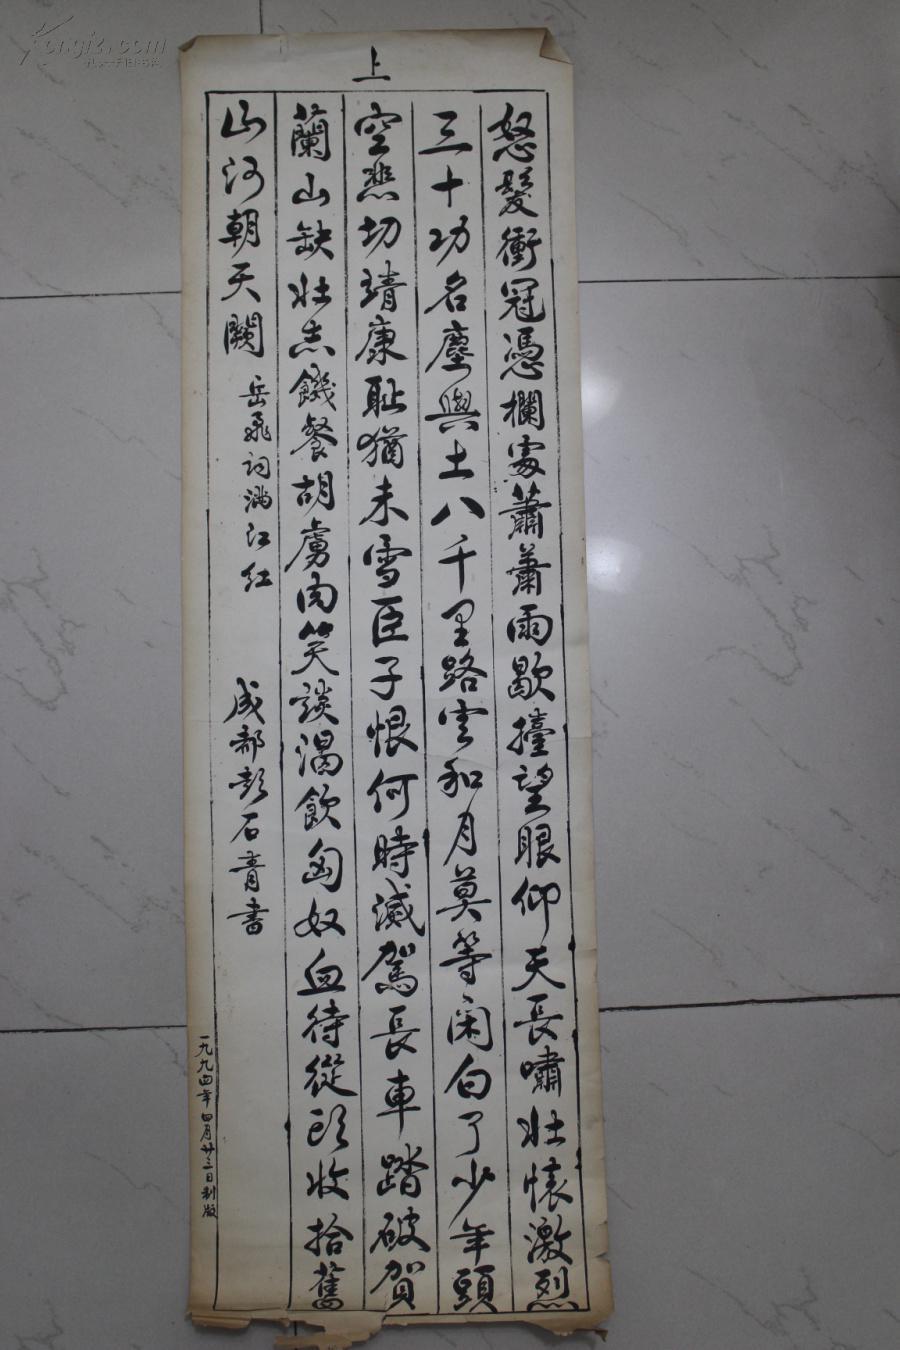 上
怒髮衝冠憑欄處蕭蕭雨歇擡望眼仰天長嘯壯懷激烈
三十功名塵與土八千里路雲和月莫等閑白了少年頭
空悲切靖康耻猶未雪臣子恨何時滅駕長車踏破賀
蘭山缺壯志饑餐胡虜肉笑談渴飲匈奴血待從頭收拾舊
山河朝天闕
岳飛詞滿江红
成都彭石青書
一九九四年四月廿三日制版
Kongfz.com